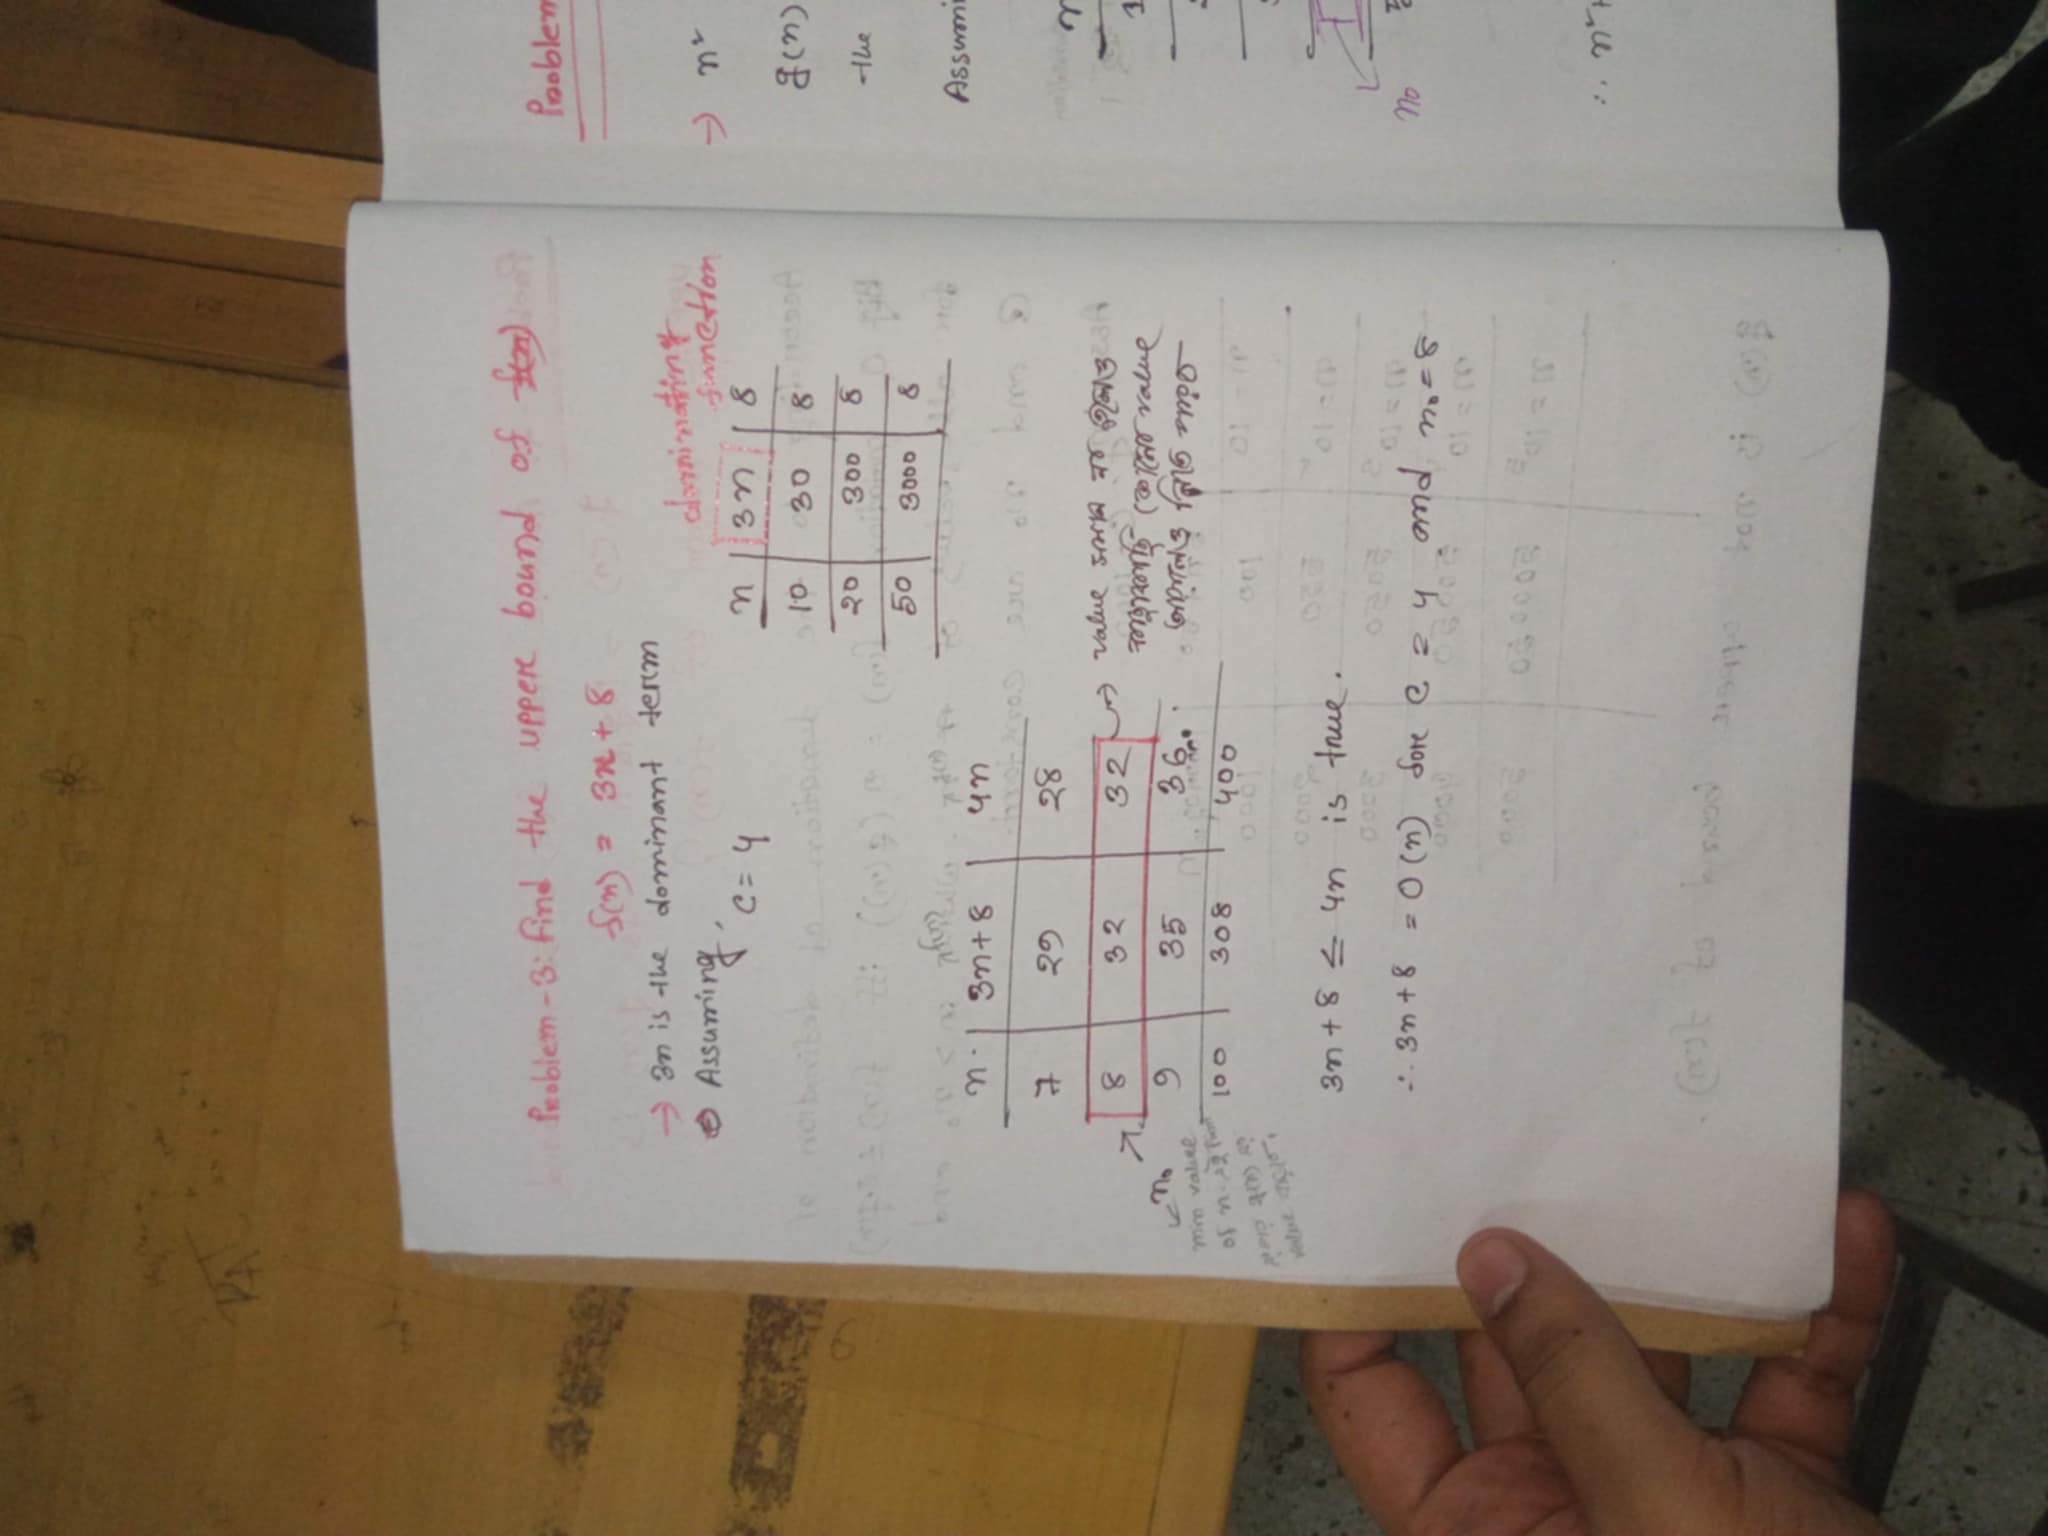 Problem-3: find the upper bound of f(n)
f(n) = 3n + 8
→ 3n is the dominant term
Assuming,
c = 4
dominating
function
n | 3n | 8
10 | 30 | 8
20 | 300 | 8
50 | 3000 | 8
f(n) g(n)
n. | 3n+8 | 4n
7 | 29 | 28
8 | 32 | 32
9 | 35 | 36
100 | 308 | 400
→ value সমান না হলেও
কাছাকাছি কোনো value
আসলেও নিতে পারব
n₀
min value
of n
value
3n + 8 ≤ 4n is true.
∴ 3n + 8 = O(n) for c = 4 and n₀ = 8
Problem
→ n²
g(n)
the
Assumi
n
1
n₀
∴ n²+